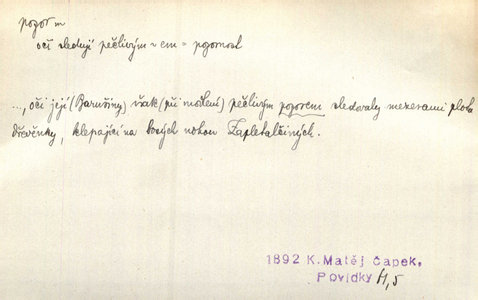 pozor m
oči sledují pečlivým ~em = pozornost
..., oči její (Baruščiny) však (při modlení) pečlivým pozorem sledovaly mezerami plotu
dřevěnky, klepající na bosých nohou Zapletalčiných.
1892 K. Matěj Čapek,
Povídky II, 5